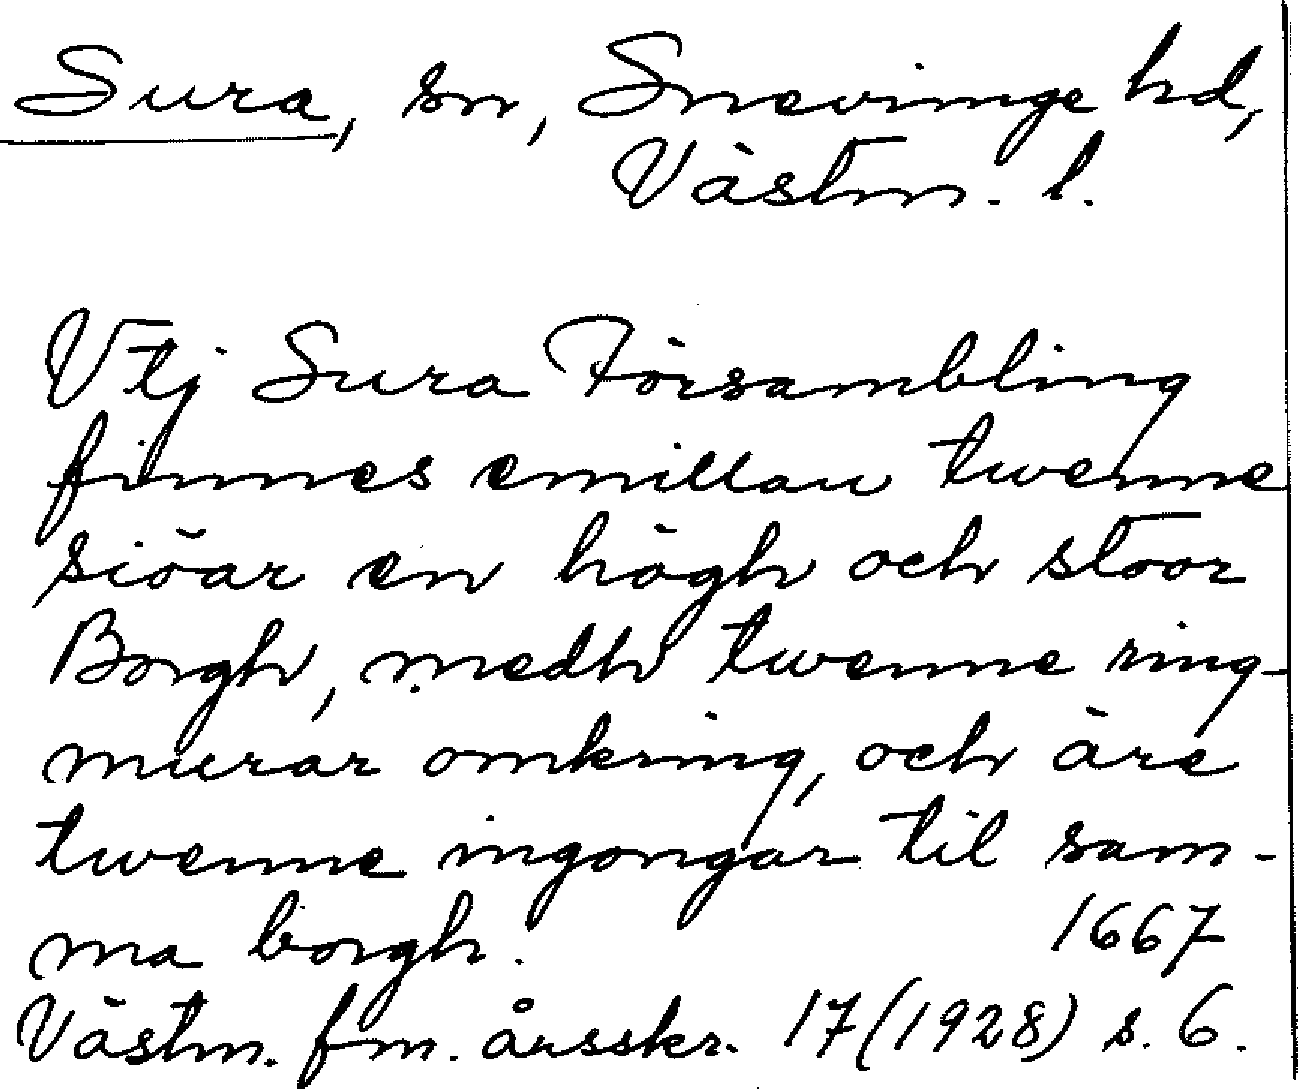 Sura, sn, Snevinge hd,
Västm. l.
Vtj Sura Försambling
finnes emillan twenne
siöar en högh och stoor
Borgh, medh twenne ring-
murar omkring, och äre
twenne ingongar til sam-
ma borgh. 1667
Västm. fm. årsskr. 17 (1928) s. 6.